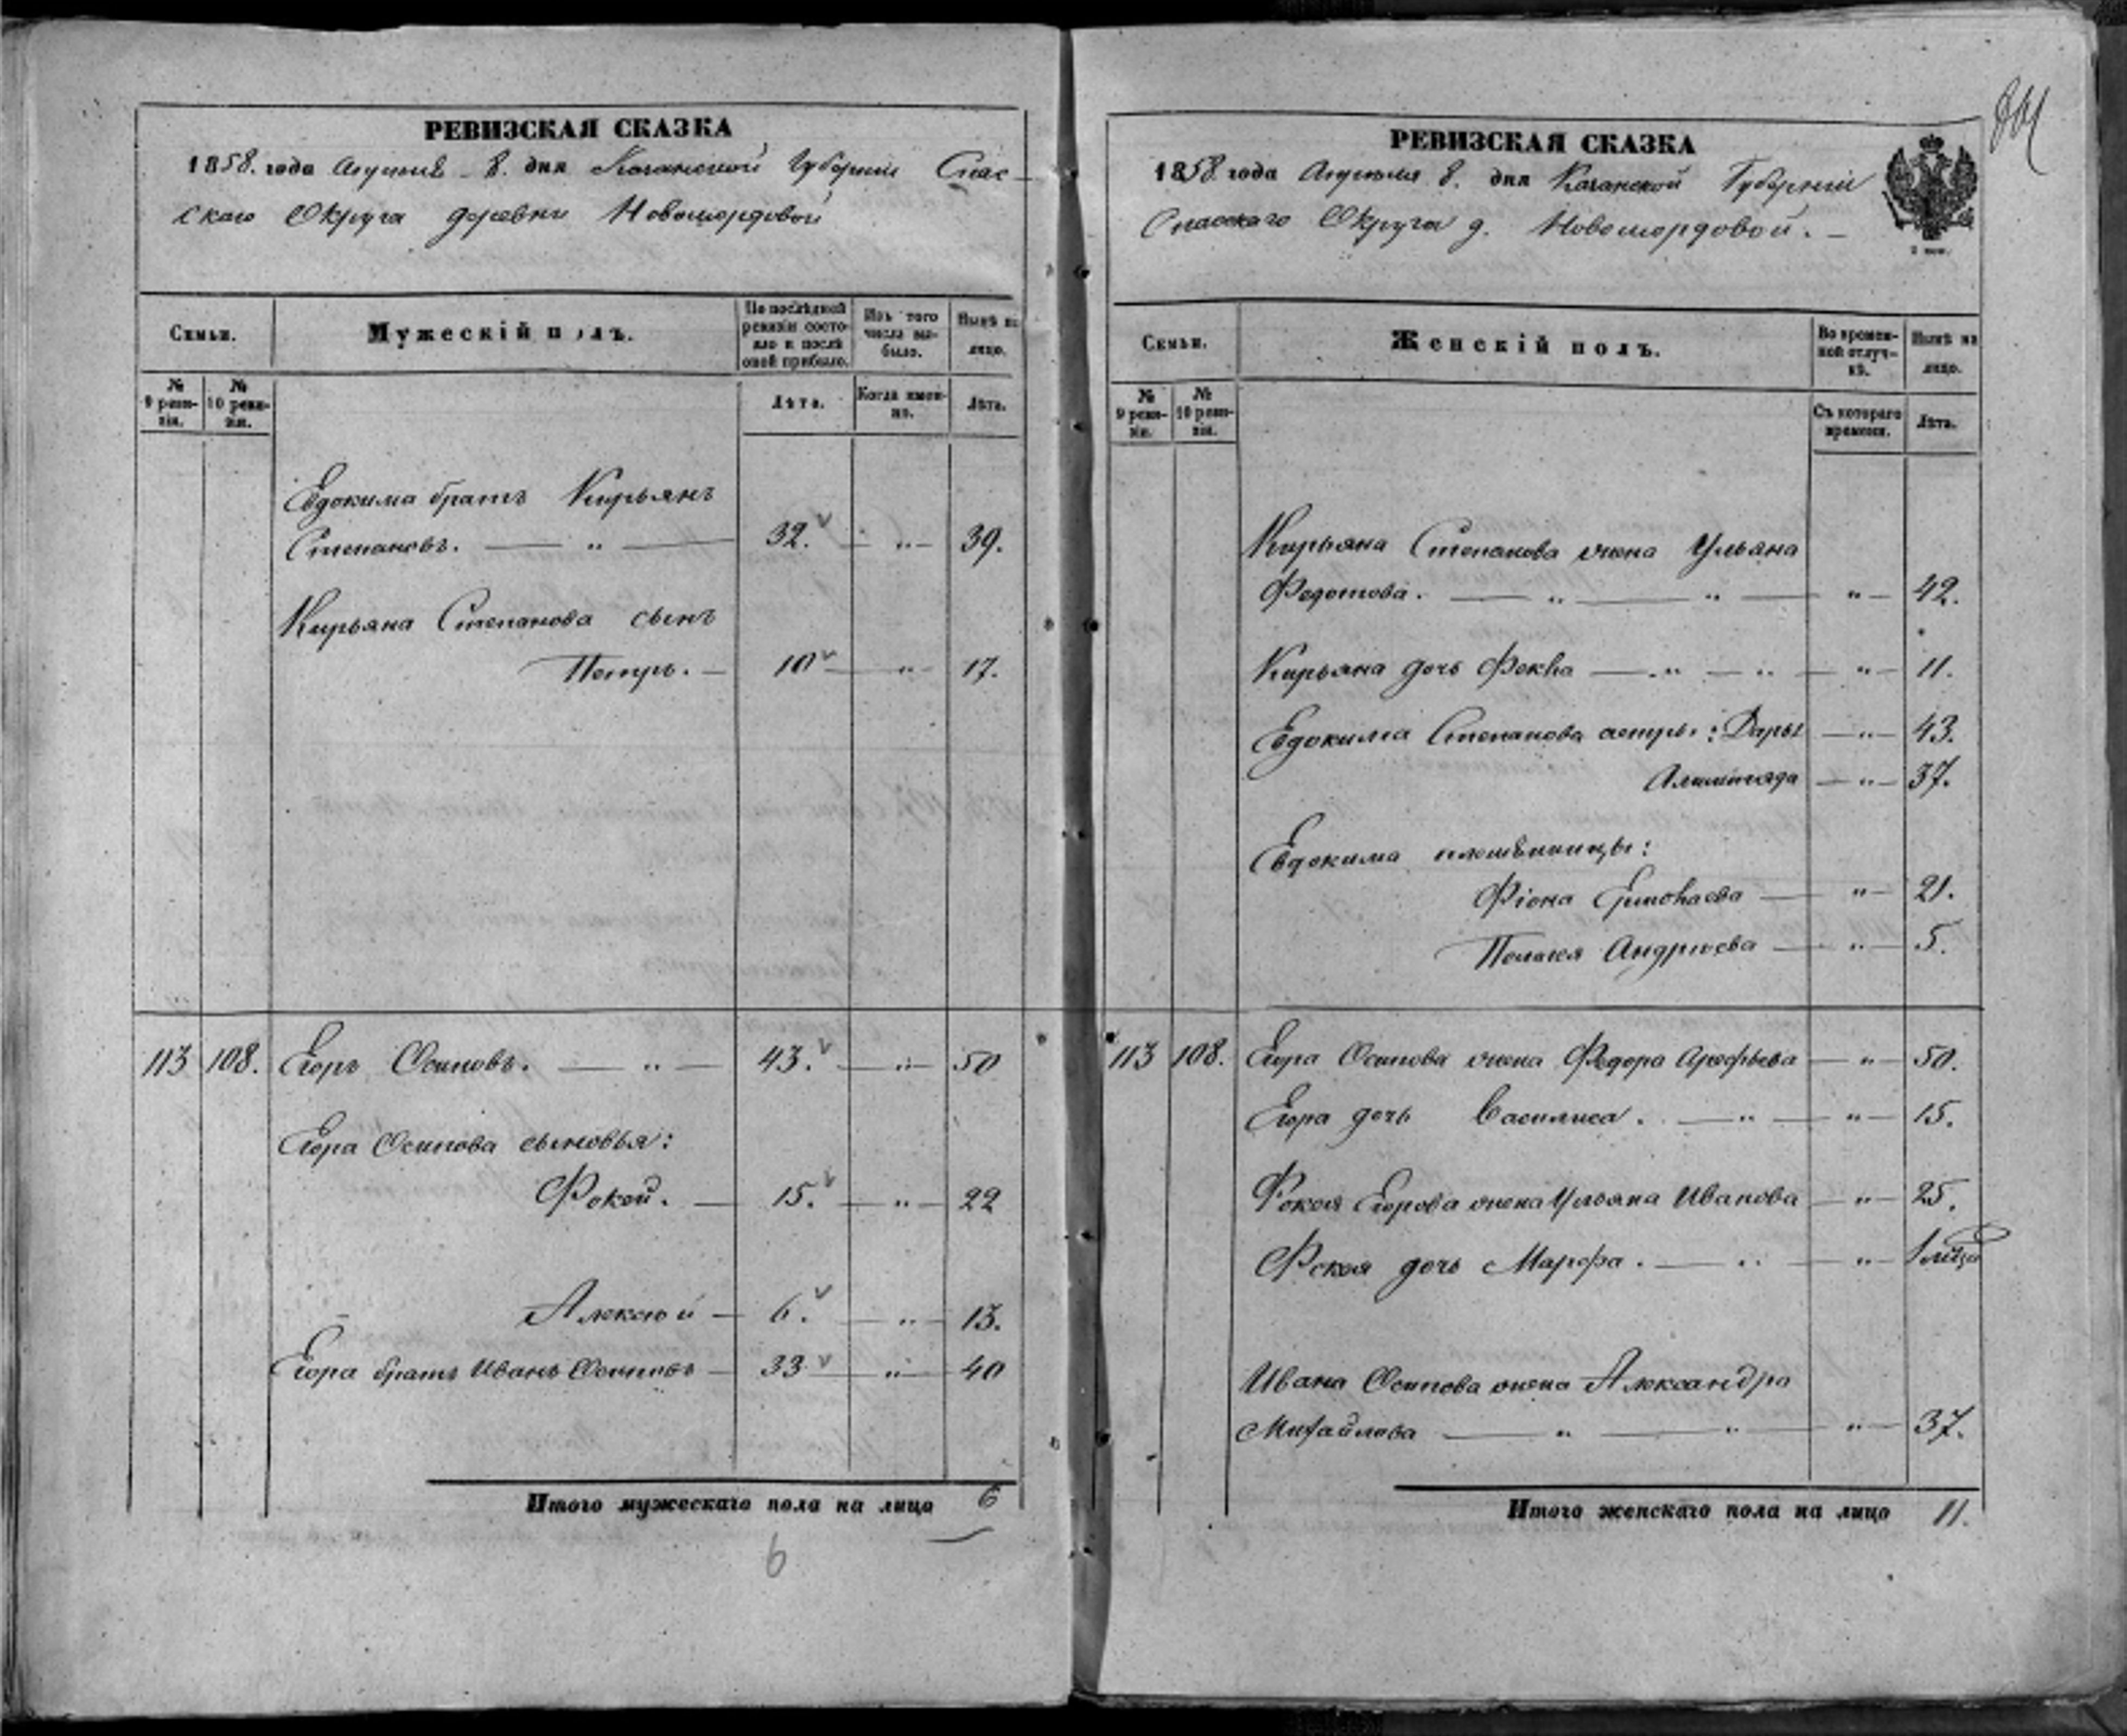 РЕВИЗСКАЯ СКАЗКА
1858. года Апреля 8. дня Казанской Губернiи Спас-
скаго Округа деревни Новомордовой
Семьи.
Мужескiй полъ.
По послѣдней ревизiи состояло и послѣ оной прибыло.
Изъ того числа выбыло.
Нынѣ на лицо.
№ 9 ревизiи.
№ 10 ревизiи.
Лѣта.
Когда именно.
Лѣта.
Евдокима братъ Кирьянъ
Степановъ. — „ — 32. — „ — 39.
Кирьяна Степанова сынъ
Петръ. — 10 — „ — 17.
113 108. Егоръ Осиповъ. — „ — 43. — „ — 50
Егора Осипова сыновья:
Фокей. — 15. — „ — 22
Алексѣй — 6. — „ — 13.
Егора братъ Иванъ Осиповъ — 33 — „ — 40
Итого мужескаго пола на лицо 6
6
РЕВИЗСКАЯ СКАЗКА
1858 года Апреля 8. дня Казанской Губернiи
Спасскаго Округа д. Новомордовой. —
Семьи.
Женскiй полъ.
Во временной отлучкѣ.
Нынѣ на лицо.
№ 9 ревизiи.
№ 10 ревизiи.
Съ котораго времени.
Лѣта.
Кирьяна Степанова жена Ульяна
Федотова. — „ — „ — „ — 42.
Кирьяна дочь Фекла — „ — „ — „ — 11.
Евдокима Степанова сестры: Дарья — „ — 43.
— „ — 37.
Евдокима племѣнницы:
Фiона — „ — 21.
Пелагея Андреева — „ — 5.
113 108. Егора Осипова жена Федора Арефьева — „ — 50.
Егора дочь Василиса. — „ — „ — 15.
Фокея Егорова жена Ульяна Иванова — „ — 25.
Фокея дочь Марфа. — „ — „ — 1
Ивана Осипова жена Александра
Михайлова — „ — „ — „ — 37.
Итого женскаго пола на лицо 11.